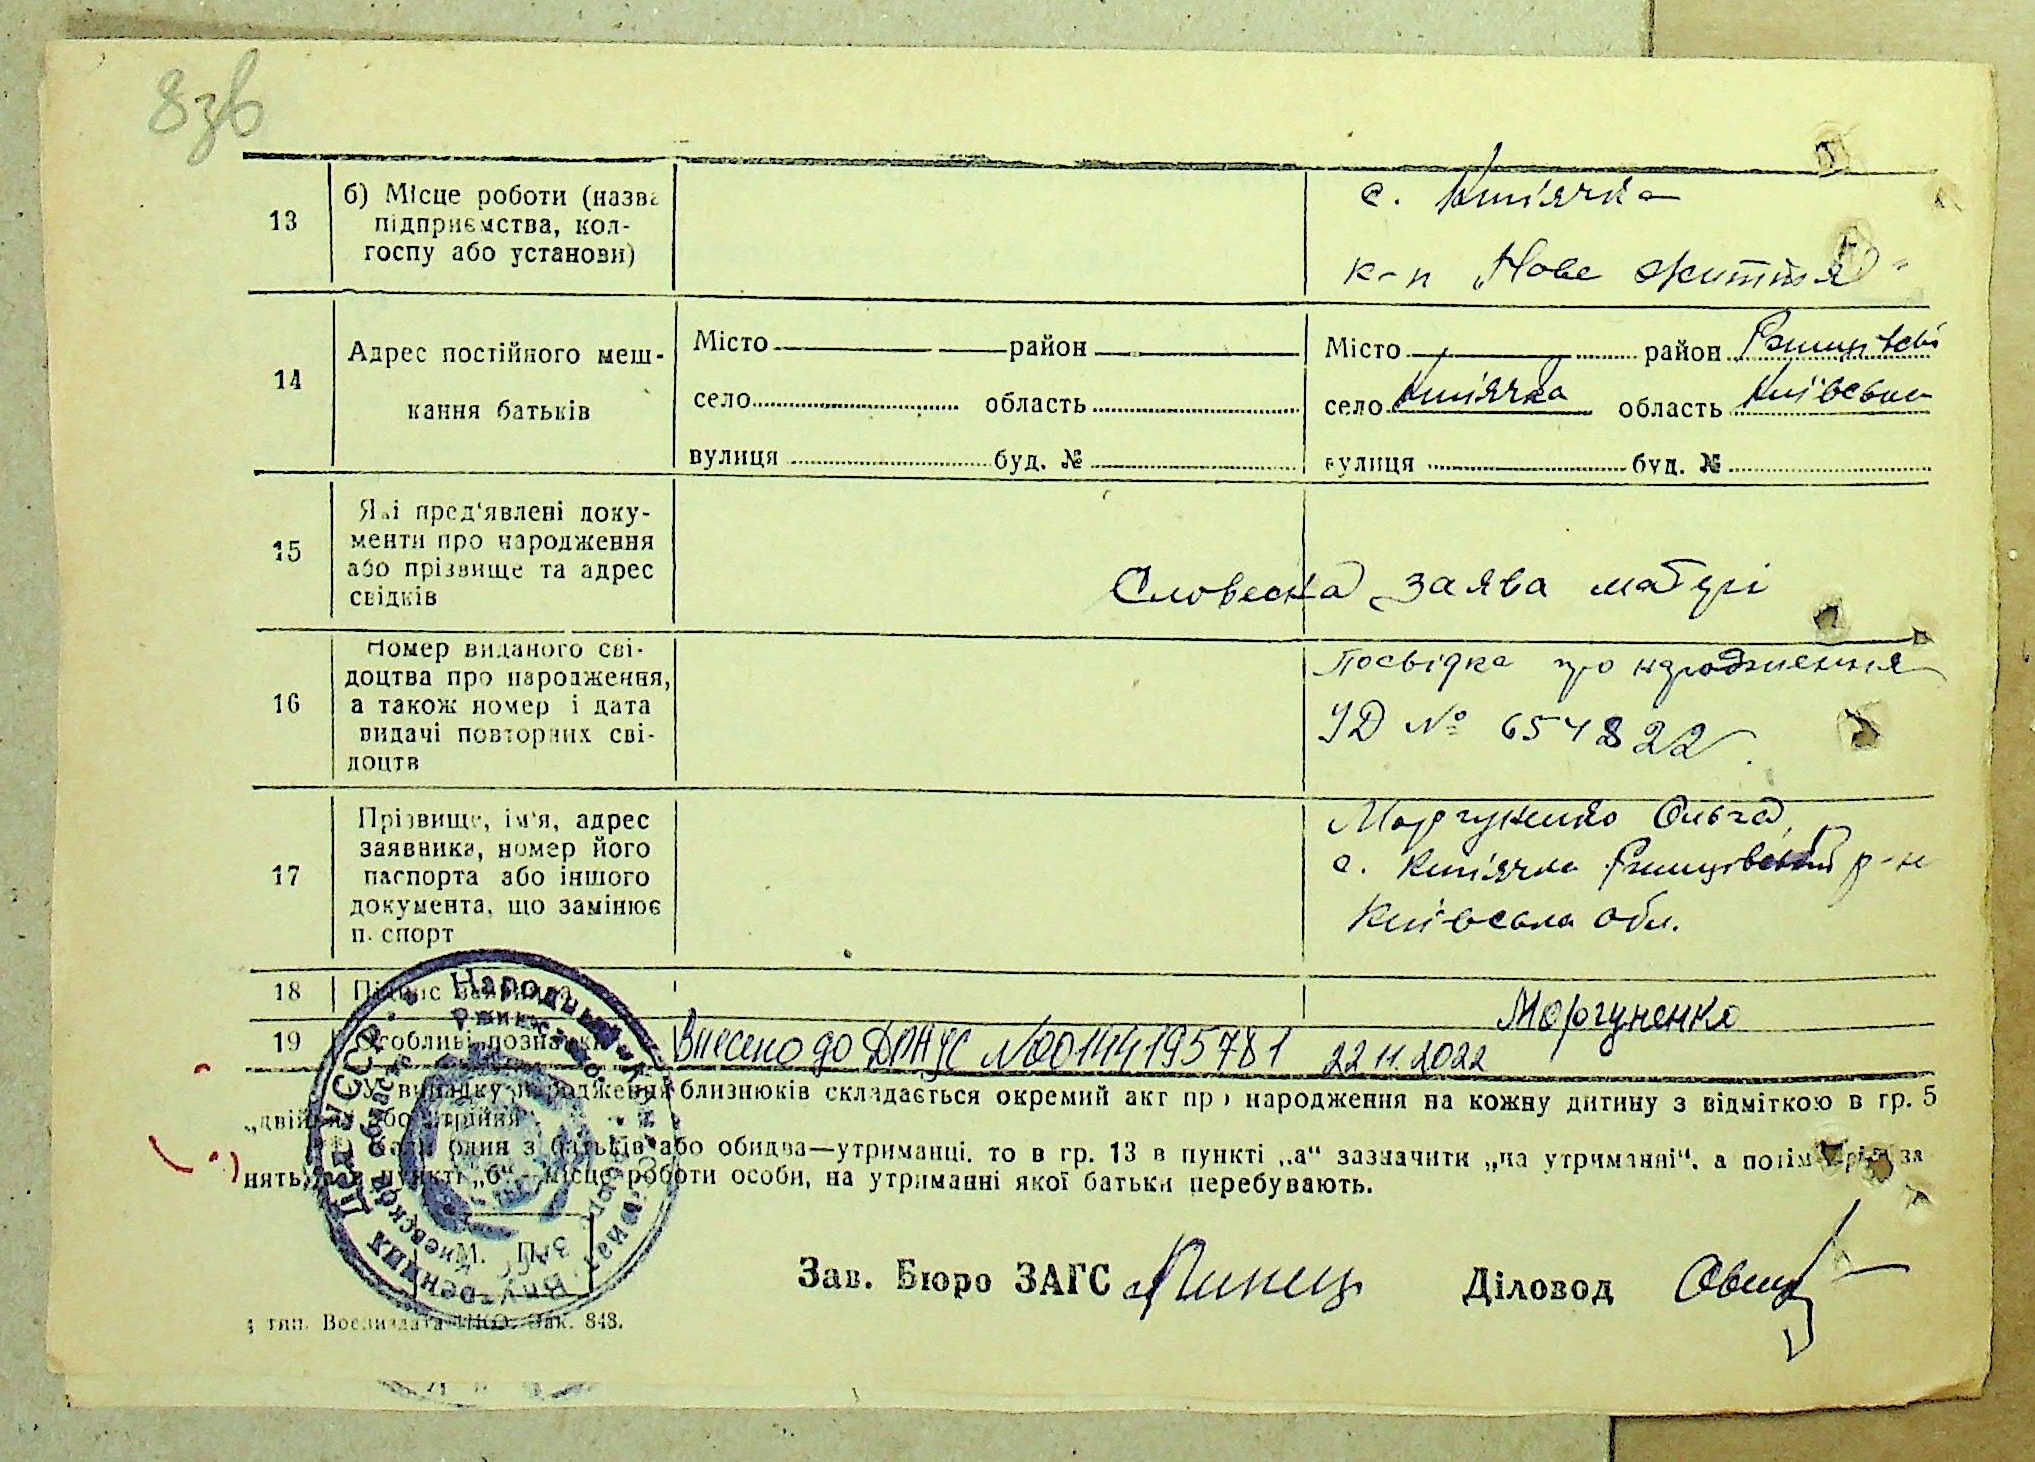 8зв
13
б) Місце роботи (назва
підприємства, кол-
госпу або установи)
с. Кип'ячка
к-п „Нове життя"
14
Адрес постійного меш-
кання батьків
Місто район
село область
вулиця буд. №
Місто район Ржищівський
село Кип'ячка область Київська
вулиця буд. №
15
Які пред'явлені доку-
менти про народження
або прізвище та адрес
свідків
Словесна заява матері
16
Номер виданого сві-
доцтва про народження,
а також номер і дата
видачі повторних сві-
доцтв
Посвідка про народження
УД № 654822
17
Прізвище, ім'я, адрес
заявника, номер його
паспорта або іншого
документа, що замінює
п. спорт
Моргуненко Ольга,
с. Кип'ячка Ржищівський р-н
Київська обл.
18
Підпис заявника
Моргуненко
19
Особливі позначки
Внесено до ДРАЦС №00144195781 22.11.2022
У випадку народження близнюків складається окремий акт про народження на кожну дитину з відміткою в гр. 5
„двійня" або „трійня".
Якщо один з батьків або обидва—утриманці, то в гр. 13 в пункті „а" зазначити „на утриманні", а потім за
няття, а в пункті „б"—місце роботи особи, на утриманні якої батьки перебувають.
М. П.
Зав. Бюро ЗАГС Діловод
тип. Воениздата НКО. Зак. 848.